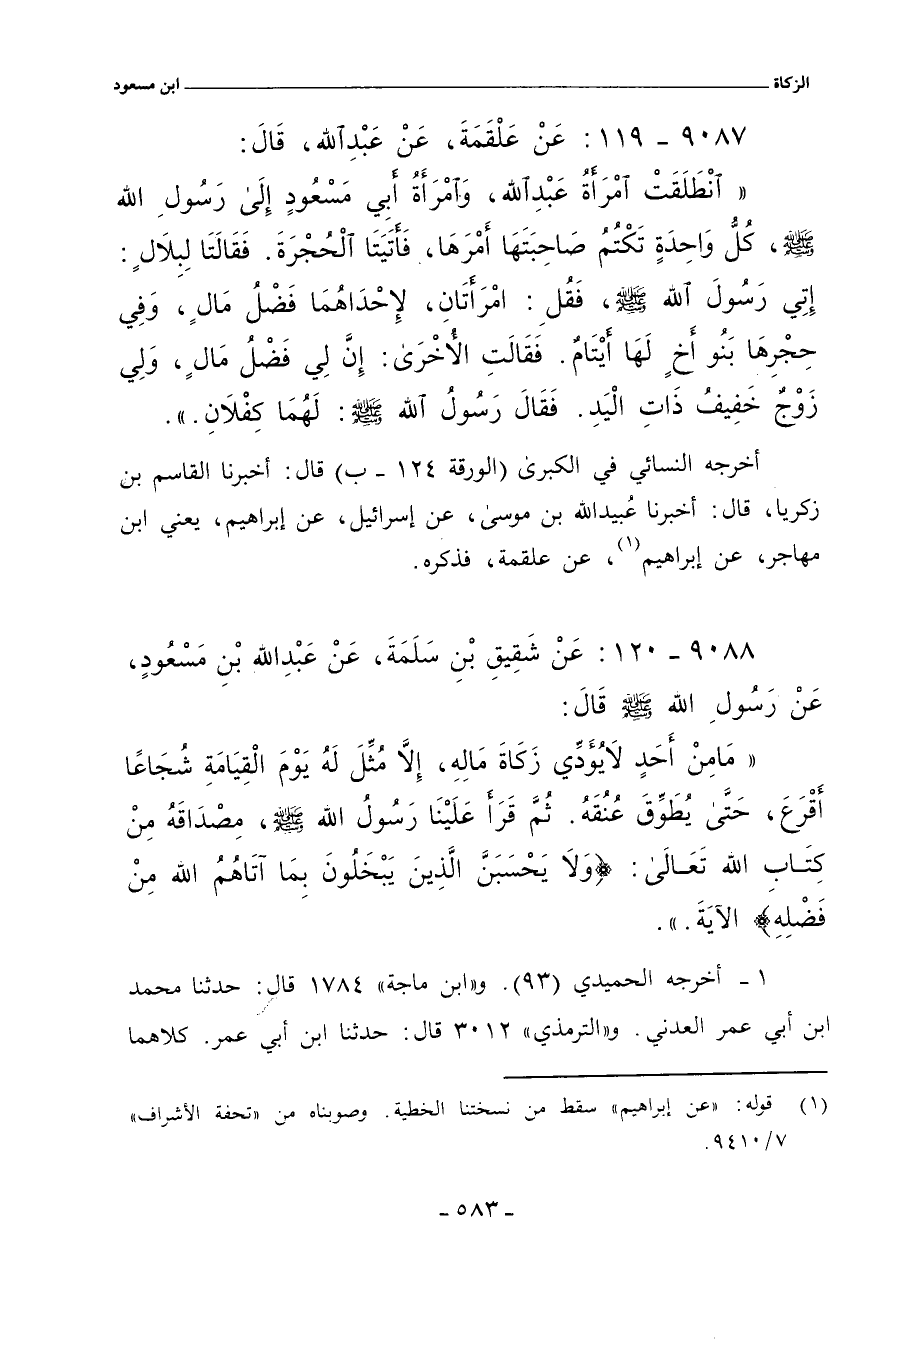 الزكاة ابن مسعود
٩٠٨٧ - ١١٩ : عَنْ عَلْقَمَةَ، عَنْ عَبْدِٱلله، قَالَ:
« ٱنْطَلَقَتْ ٱمْرَأَةُ عَبْدِٱلله، وَٱمْرَأَةُ أَبِي مَسْعُودٍ إِلَىٰ رَسُولِ الله
ﷺ، كُلُّ وَاحِدَةٍ تَكْتُمُ صَاحِبَتَهَا أَمْرَهَا، فَأَتَيَتَا ٱلْحُجْرَةَ. فَقَالَتَا لِبِلَالٍ :
إِتِي رَسُولَ ٱلله ﷺ، فَقُلِ : امْرَأَتَانِ، لِإِحْدَاهُمَا فَضْلُ مَالٍ، وَفِي
حِجْرِهَا بَنُو أَخٍ لَهَا أَيْتَامٌ. فَقَالَتِ الأُخْرَىٰ: إِنَّ لِي فَضْلُ مَالٍ، وَلِي
زَوْجٌ خَفِيفُ ذَاتِ الْيَدِ. فَقَالَ رَسُولُ ٱلله ﷺ: لَهُمَا كِفْلَانِ.».
أخرجه النسائي في الكبرىٰ (الورقة ١٢٤ - ب) قال: أخبرنا القاسم بن
زكريا، قال: أخبرنا عُبيدالله بن موسىٰ، عن إسرائيل، عن إبراهيم، يعني ابن
مهاجر، عن إبراهيم(١)، عن علقمة، فذكره.
٩٠٨٨ - ١٢٠ : عَنْ شَقِيقِ بْنِ سَلَمَةَ، عَنْ عَبْدِالله بْنِ مَسْعُودٍ،
عَنْ رَسُولِ الله ﷺ قَالَ:
« مَامِنْ أَحَدٍ لَايُؤَدِّي زَكَاةَ مَالِهِ، إِلَّا مُثِّلَ لَهُ يَوْمَ الْقِيَامَةِ شُجَاعًا
أَقْرَعَ، حَتَّىٰ يُطَوِّقَ عُنُقَهُ. ثُمَّ قَرَأَ عَلَيْنَا رَسُولُ الله ﷺ، مِصْدَاقَهُ مِنْ
كِتَـابِ الله تَعَـالَىٰ: ﴿وَلَا يَحْسَبَنَّ الَّذِينَ يَبْخَلُونَ بِمَا آتَاهُمُ الله مِنْ
فَضْلِهِ﴾ الآيَةَ.».
١ - أخرجه الحميدي (٩٣). و«ابن ماجة» ١٧٨٤ قال: حدثنا محمد
ابن أبي عمر العدني. و«الترمذي» ٣٠١٢ قال: حدثنا ابن أبي عمر. كلاهما
(١) قوله: «عن إبراهيم» سقط من نسختنا الخطية. وصوبناه من «تحفة الأشراف»
٩٤١٠/٧.
- ٥٨٣ -